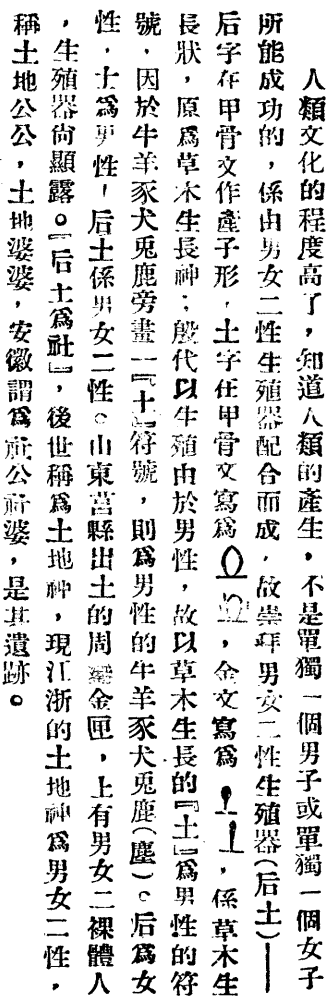 人類文化的程度高了，知道人類的產生，不是單獨一個男子或單獨一個女子
所能成功的，係由男女二性生殖器配合而成，故崇拜男女二性生殖器（后土）——
后字在甲骨文作產子形，土字在甲骨文寫爲，金文寫爲，係草木生
長狀，原爲草木生長神；殷代以生殖由於男性，故以草木生長的『土』爲男性的符
號，因於牛羊豕犬兕鹿旁畫一『土』符號，則爲男性的牛羊豕犬兕鹿（塵）。后爲女
性，土爲男性，后土係男女二性。山東莒縣出土的周金匣，上有男女二裸體人
，生殖器尙顯露。『后土爲社』，後世稱爲土地神，現江浙的土地神爲男女二性，
稱土地公公，土地婆婆，安徽謂爲社公社婆，是其遺跡。